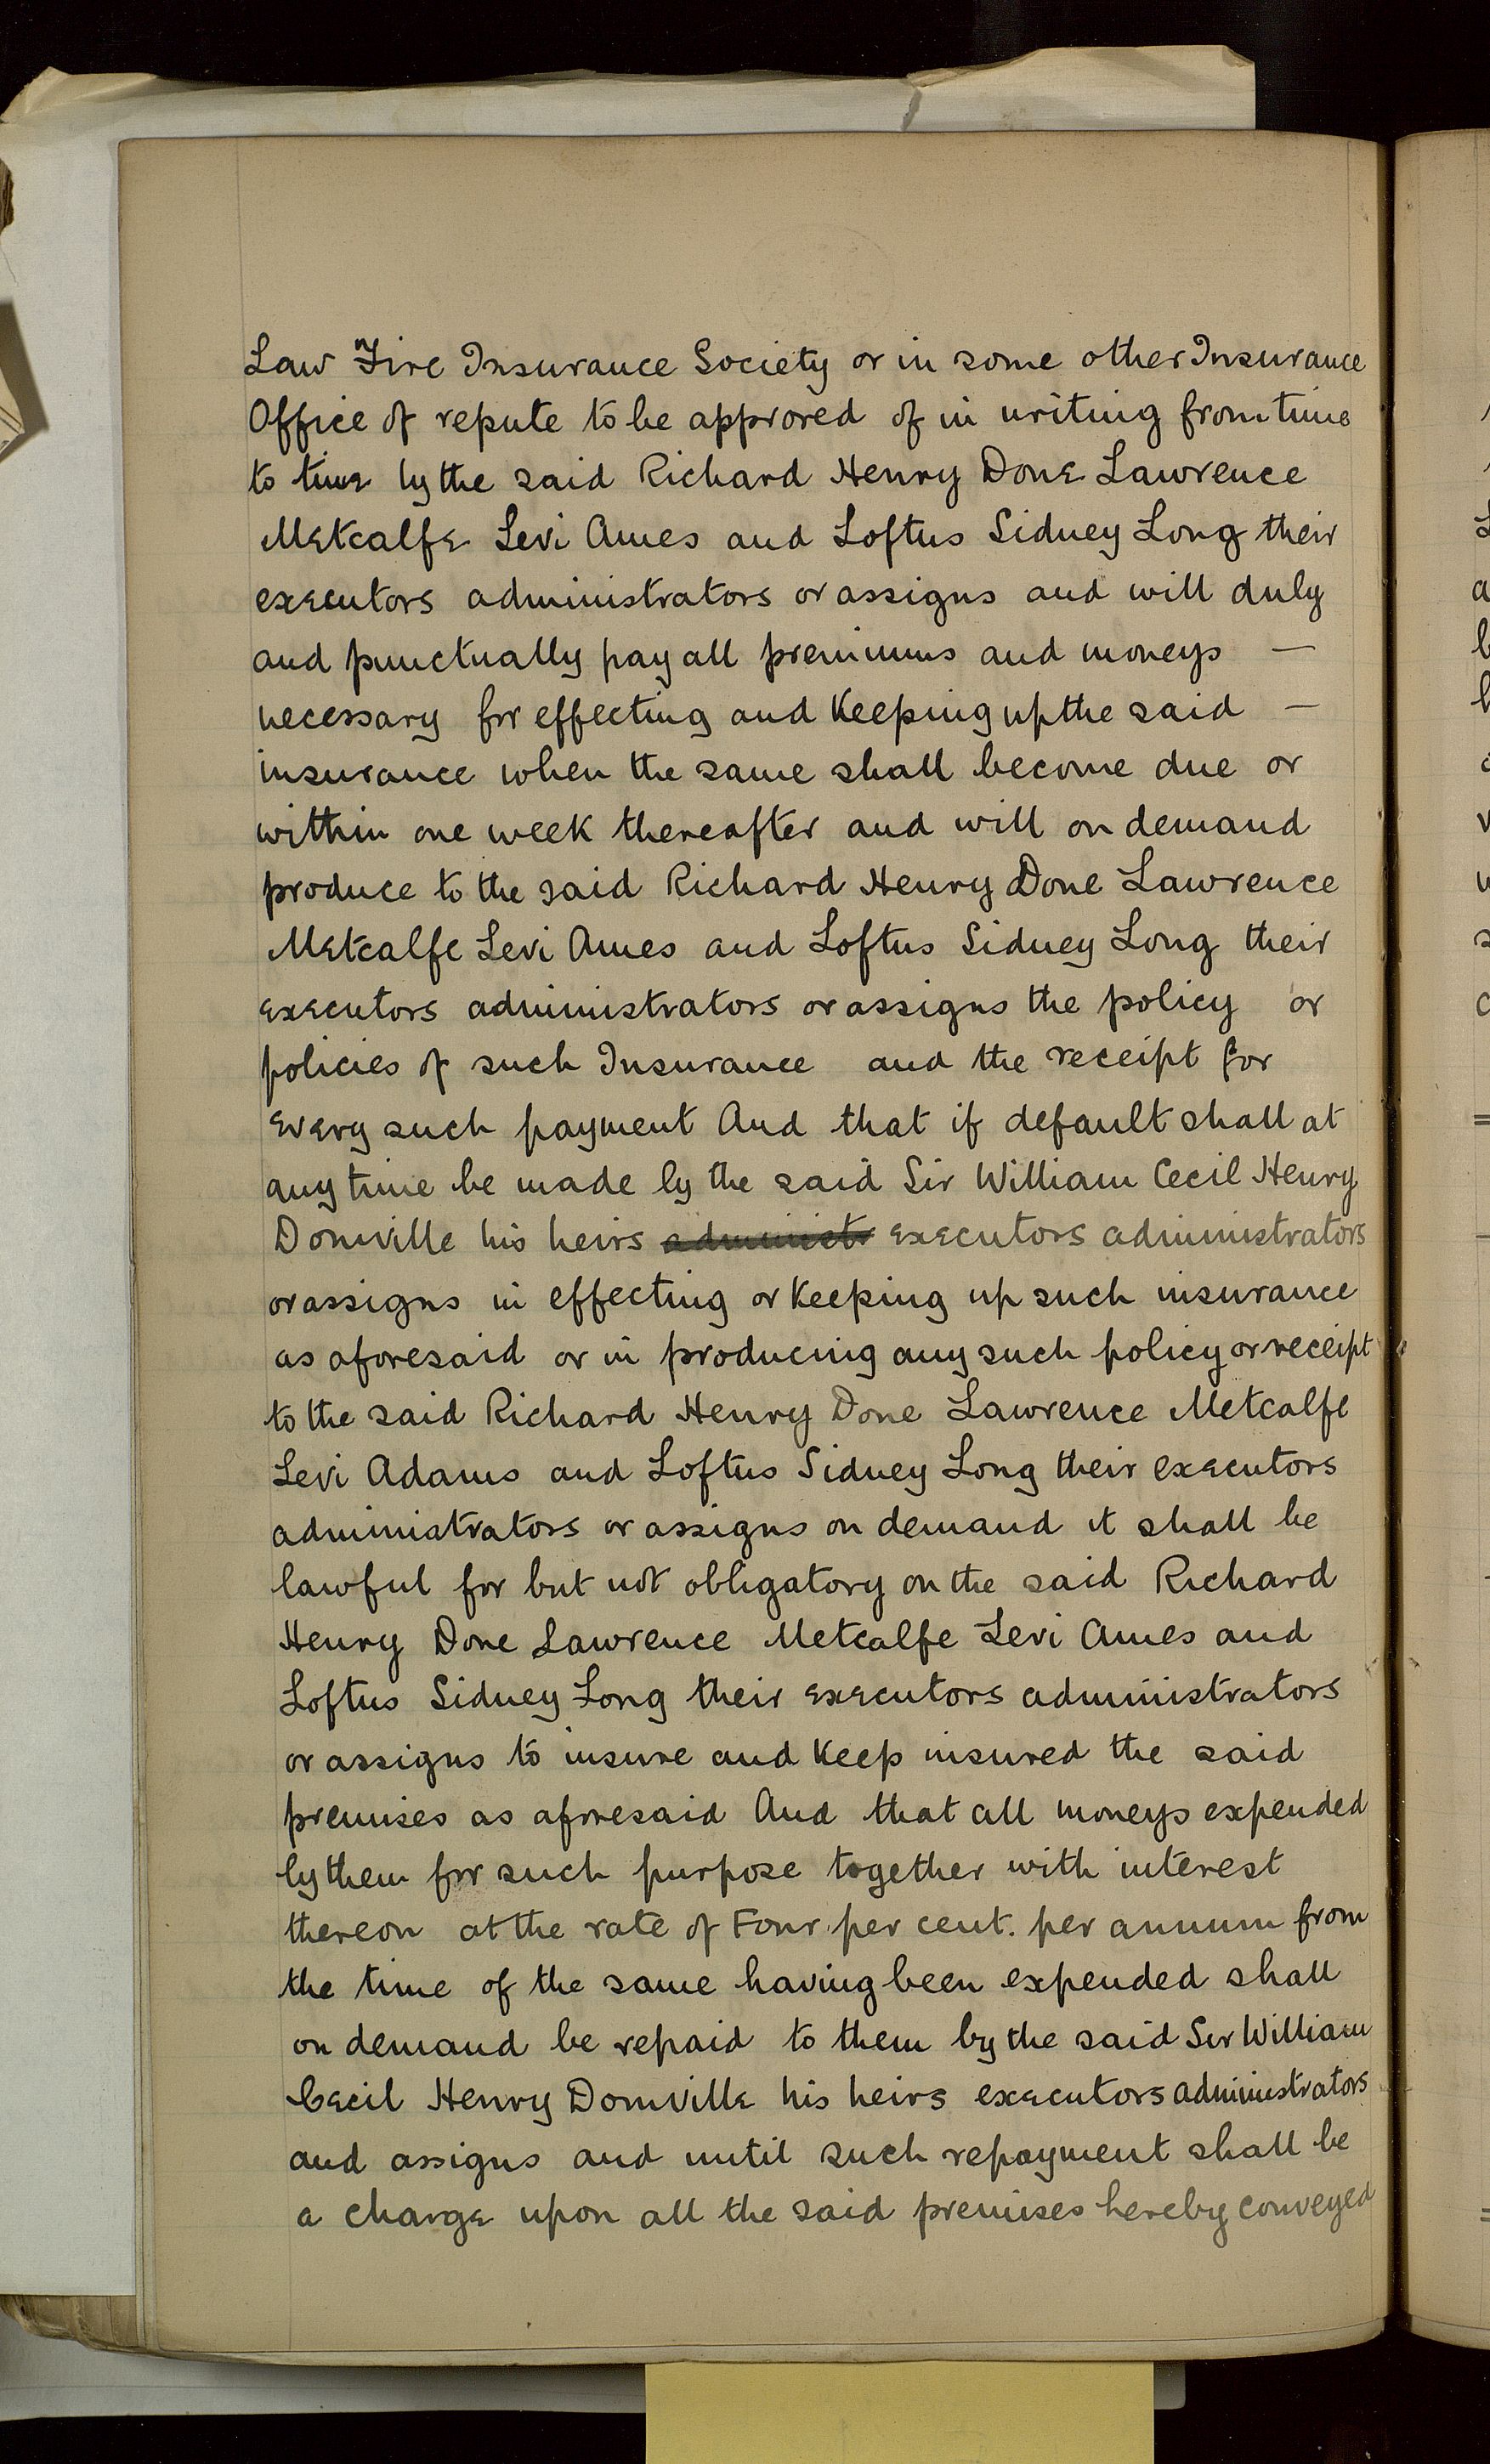 Law Fire Insurance Society or in some other Insurance
Office of repute to be approved of in writing from time
to time by the said Richard Henry Done Lawrence
Metcalfe Levi Ames and Loftus Sidney Long their
executors administrators or assigns and will duly
and punctually pay all premiums and moneys —
necessary for effecting and keeping up the said —
insurance when the same shall become due or
within one week thereafter and will on demand
produce to the said Richard Henry Done Lawrence
Metcalfe Levi Ames and Loftus Sidney Long their
executors administrators or assigns the policy or
policies of such Insurance and the receipt for
every such payment And that if default shall at
any time be made by the said Sir William Cecil Henry
Domville his heirs administr executors administrators
or assigns in effecting or keeping up such insurance
as aforesaid or in producing any such policy or receipt
to the said Richard Henry Done Lawrence Metcalfe
Levi Adams and Loftus Sidney Long their executors
administrators or assigns on demand it shall be
lawful for but not obligatory on the said Richard
Henry Done Lawrence Metcalfe Levi Ames and
Loftus Sidney Long their executors administrators
or assigns to insure and keep insured the said
premises as aforesaid And that all moneys expended
by them for such purpose together with interest
thereon at the rate of Four per cent. per annum from
the time of the same having been expended shall
on demand be repaid to them by the said Sir William
Cecil Henry Domville his heirs executors administrators
and assigns and until such repayment shall be
a charge upon all the said premises hereby conveyed